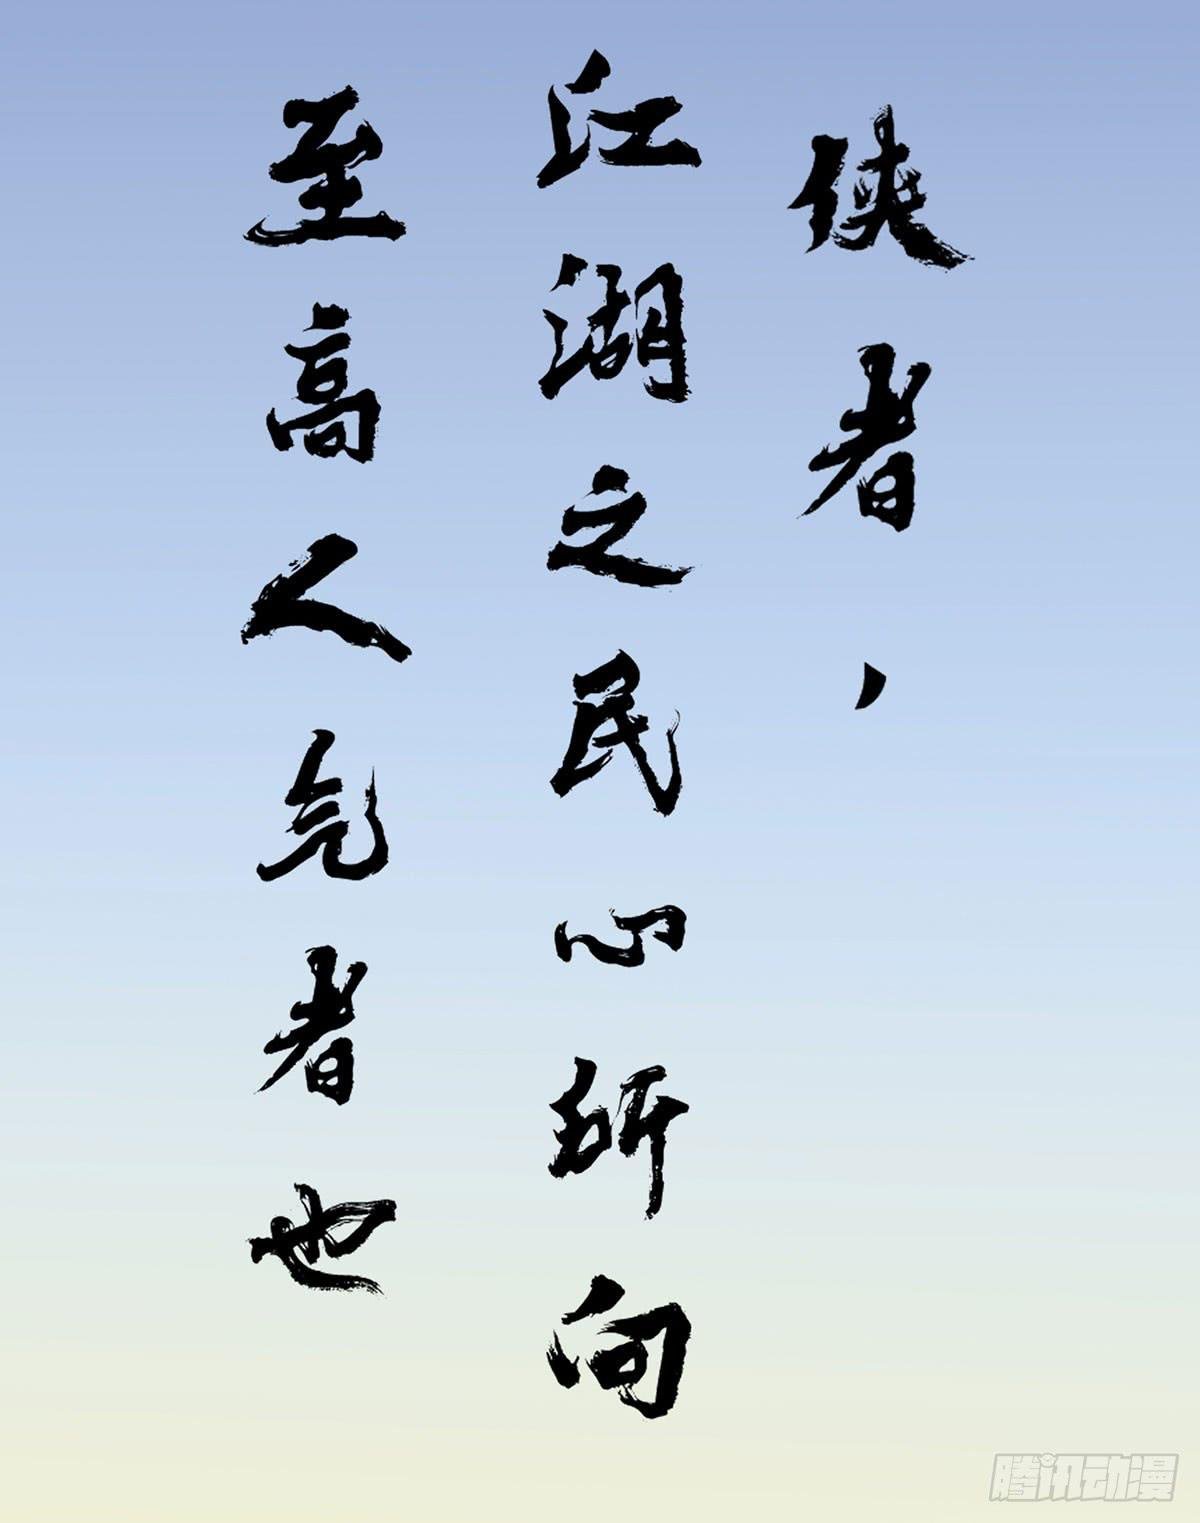 侠者，
江湖之民心所向
至高人气者也
腾讯动漫